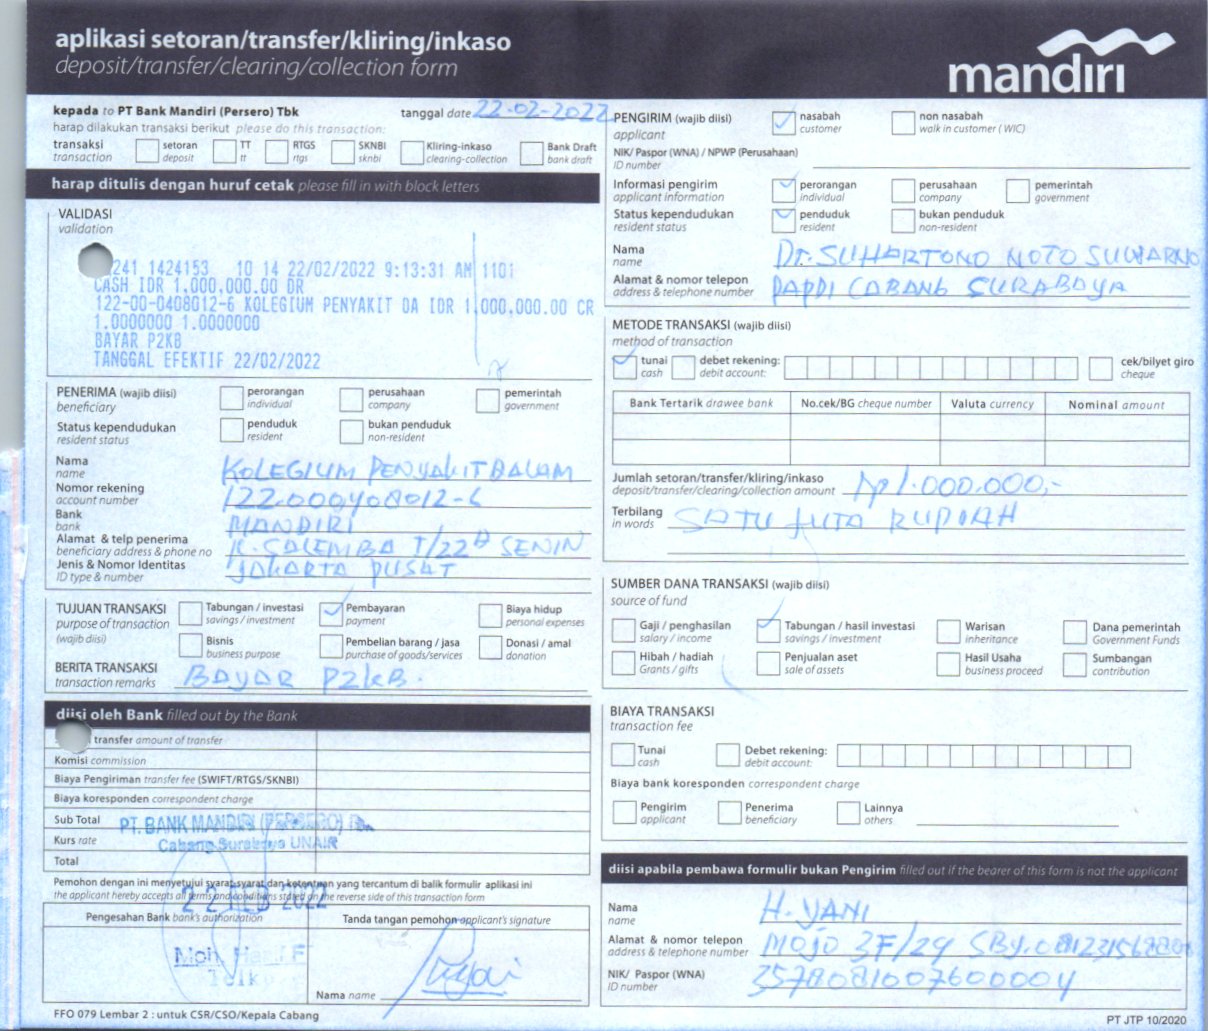 aplikasi setoran/transfer/kliring/inkaso
deposit/transfer/clearing/collection form
mandırı
kepada to PT Bank Mandiri (Persero) Tbk
tanggal date 22-02-2022
harap dilakukan transaksi berikut please do this transaction:
transaksi setoran TT RTGS SKNBI Kliring-inkaso Bank Draft
transaction deposit tt rtgs sknbi clearing-collection bank draft
harap ditulis dengan huruf cetak please fill in with block letters
VALIDASI
validation
241 1424153 10 14 22/02/2022 9:13:31 AM 1101
CASH IDR 1,000,000.00 DR
122-00-0408012-6 KOLEGIUM PENYAKIT DA IDR 1,000,000.00 CR
1.0000000 1.0000000
BAYAR P2KB
TANGGAL EFEKTIF 22/02/2022
PENERIMA (wajib diisi) perorangan perusahaan pemerintah
beneficiary individual company government
Status kependudukan penduduk bukan penduduk
resident status resident non-resident
Nama KOLEGIUM PENYAKIT DALAM
name
Nomor rekening 122.000408012-6
account number
Bank MANDIRI
bank
Alamat & telp penerima SALEMBA I/22 SENIN
beneficiary address & phone no
Jenis & Nomor Identitas JAKARTA PUSAT
ID type & number
TUJUAN TRANSAKSI Tabungan / investasi Pembayaran Biaya hidup
purpose of transaction savings / investment payment personal expenses
(wajib diisi) Bisnis Pembelian barang / jasa Donasi / amal
business purpose purchase of goods/services donation
BERITA TRANSAKSI BAYAR P2KB.
transaction remarks
diisi oleh Bank filled out by the Bank
transfer amount of transfer
Komisi commission
Biaya Pengiriman transfer fee (SWIFT/RTGS/SKNBI)
Biaya koresponden correspondent charge
Sub Total
PT. BANK MANDIRI (PERSERO) Tbk
Kurs rate
Cabang Surabaya UNAIR
Total
Pemohon dengan ini menyetujui syarat-syarat dan ketentuan yang tercantum di balik formulir aplikasi ini
the applicant hereby accepts all terms and conditions stated on the reverse side of this transaction form
22 FEB 2022
Pengesahan Bank bank's authorization Tanda tangan pemohon applicant's signature
Moh.
Nama name
FFO 079 Lembar 2 : untuk CSR/CSO/Kepala Cabang
PENGIRIM (wajib diisi) nasabah non nasabah
applicant customer walk in customer ( WIC)
NIK/ Paspor (WNA) / NPWP (Perusahaan)
ID number
Informasi pengirim perorangan perusahaan pemerintah
applicant information individual company government
Status kependudukan penduduk bukan penduduk
resident status resident non-resident
Nama Dr. SUHARTONO NOTO SUWARNO
name
Alamat & nomor telepon PAPDI CABANG SURABAYA
address & telephone number
METODE TRANSAKSI (wajib diisi)
method of transaction
tunai debet rekening: cek/bilyet giro
cash debit account: cheque
Bank Tertarik drawee bank No.cek/BG cheque number Valuta currency Nominal amount
Jumlah setoran/transfer/kliring/inkaso Rp 1.000.000,-
deposit/transfer/clearing/collection amount
Terbilang SATU JUTA RUPIAH
in words
SUMBER DANA TRANSAKSI (wajib diisi)
source of fund
Gaji / penghasilan Tabungan / hasil investasi Warisan Dana pemerintah
salary / income savings / investment inheritance Government Funds
Hibah / hadiah Penjualan aset Hasil Usaha Sumbangan
Grants / gifts sale of assets business proceed contribution
BIAYA TRANSAKSI
transaction fee
Tunai Debet rekening:
cash debit account:
Biaya bank koresponden correspondent charge
Pengirim Penerima Lainnya
applicant beneficiary others
diisi apabila pembawa formulir bukan Pengirim filled out if the bearer of this form is not the applicant
Nama H. YANI
name
Alamat & nomor telepon MOJO 3F/29 SBY.
address & telephone number
NIK/ Paspor (WNA) 3578081007600004
ID number
PT JTP 10/2020